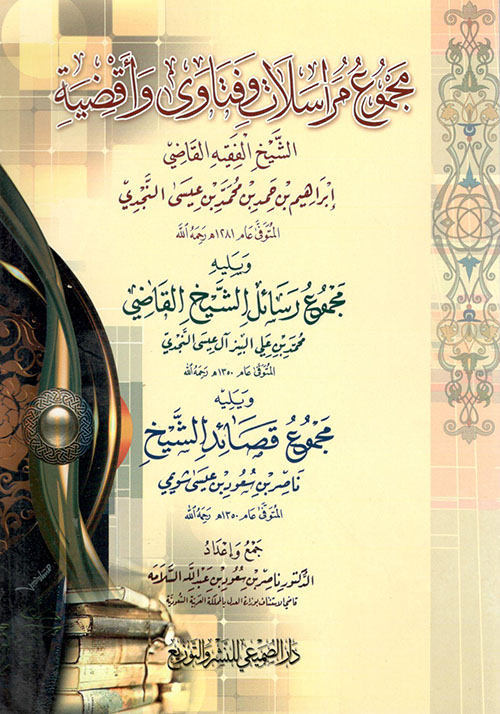 مَجْمُوعُ مُرَاسَلَاتٍ وَفَتَاوَى وَأَقْضِيَةِ
الشَّيْخِ الفَقِيْهِ القَاضِيْ
إِبْرَاهِيم بْن حَمَد بْن مُحَمَّد بْن عِيسَى النَّجْدِي
المُتَوَفَّى عَام ١٢٨١هـ رَحِمَهُ اللَّه
وَيَلِيهِ
مَجْمُوعُ رَسَائِل الشَّيْخِ القَاضِي
مُحَمَّد بْن عَلِي البِيْز آل عِيسَى النَّجْدِي
المُتَوَفَّى عَام ١٣٥٠هـ رَحِمَهُ اللَّه
وَيَلِيْهِ
مَجْمُوعُ قَصَائِد الشَّيْخِ
نَاصِر بْن سُعُود بْن عِيسَى شُوَيمِي
المُتَوَفَّى عَام ١٣٥٠هـ رَحِمَهُ اللَّه
جَمْعُ وَإِعْدَادُ
الدُّكتور نَاصِر بْن سُعُود بْن عَبْد اللَّه السَّلَامَه
قَاضِي الاسْتِئْنَاف بِوَزَارَة العَدل بِالمَمْلَكَة العَرَبِيَّة السُّعُودِيَّة
دَارُ الصُّمَيْعِي لِلنَّشْرِ وَالتَّوْزِيعِ